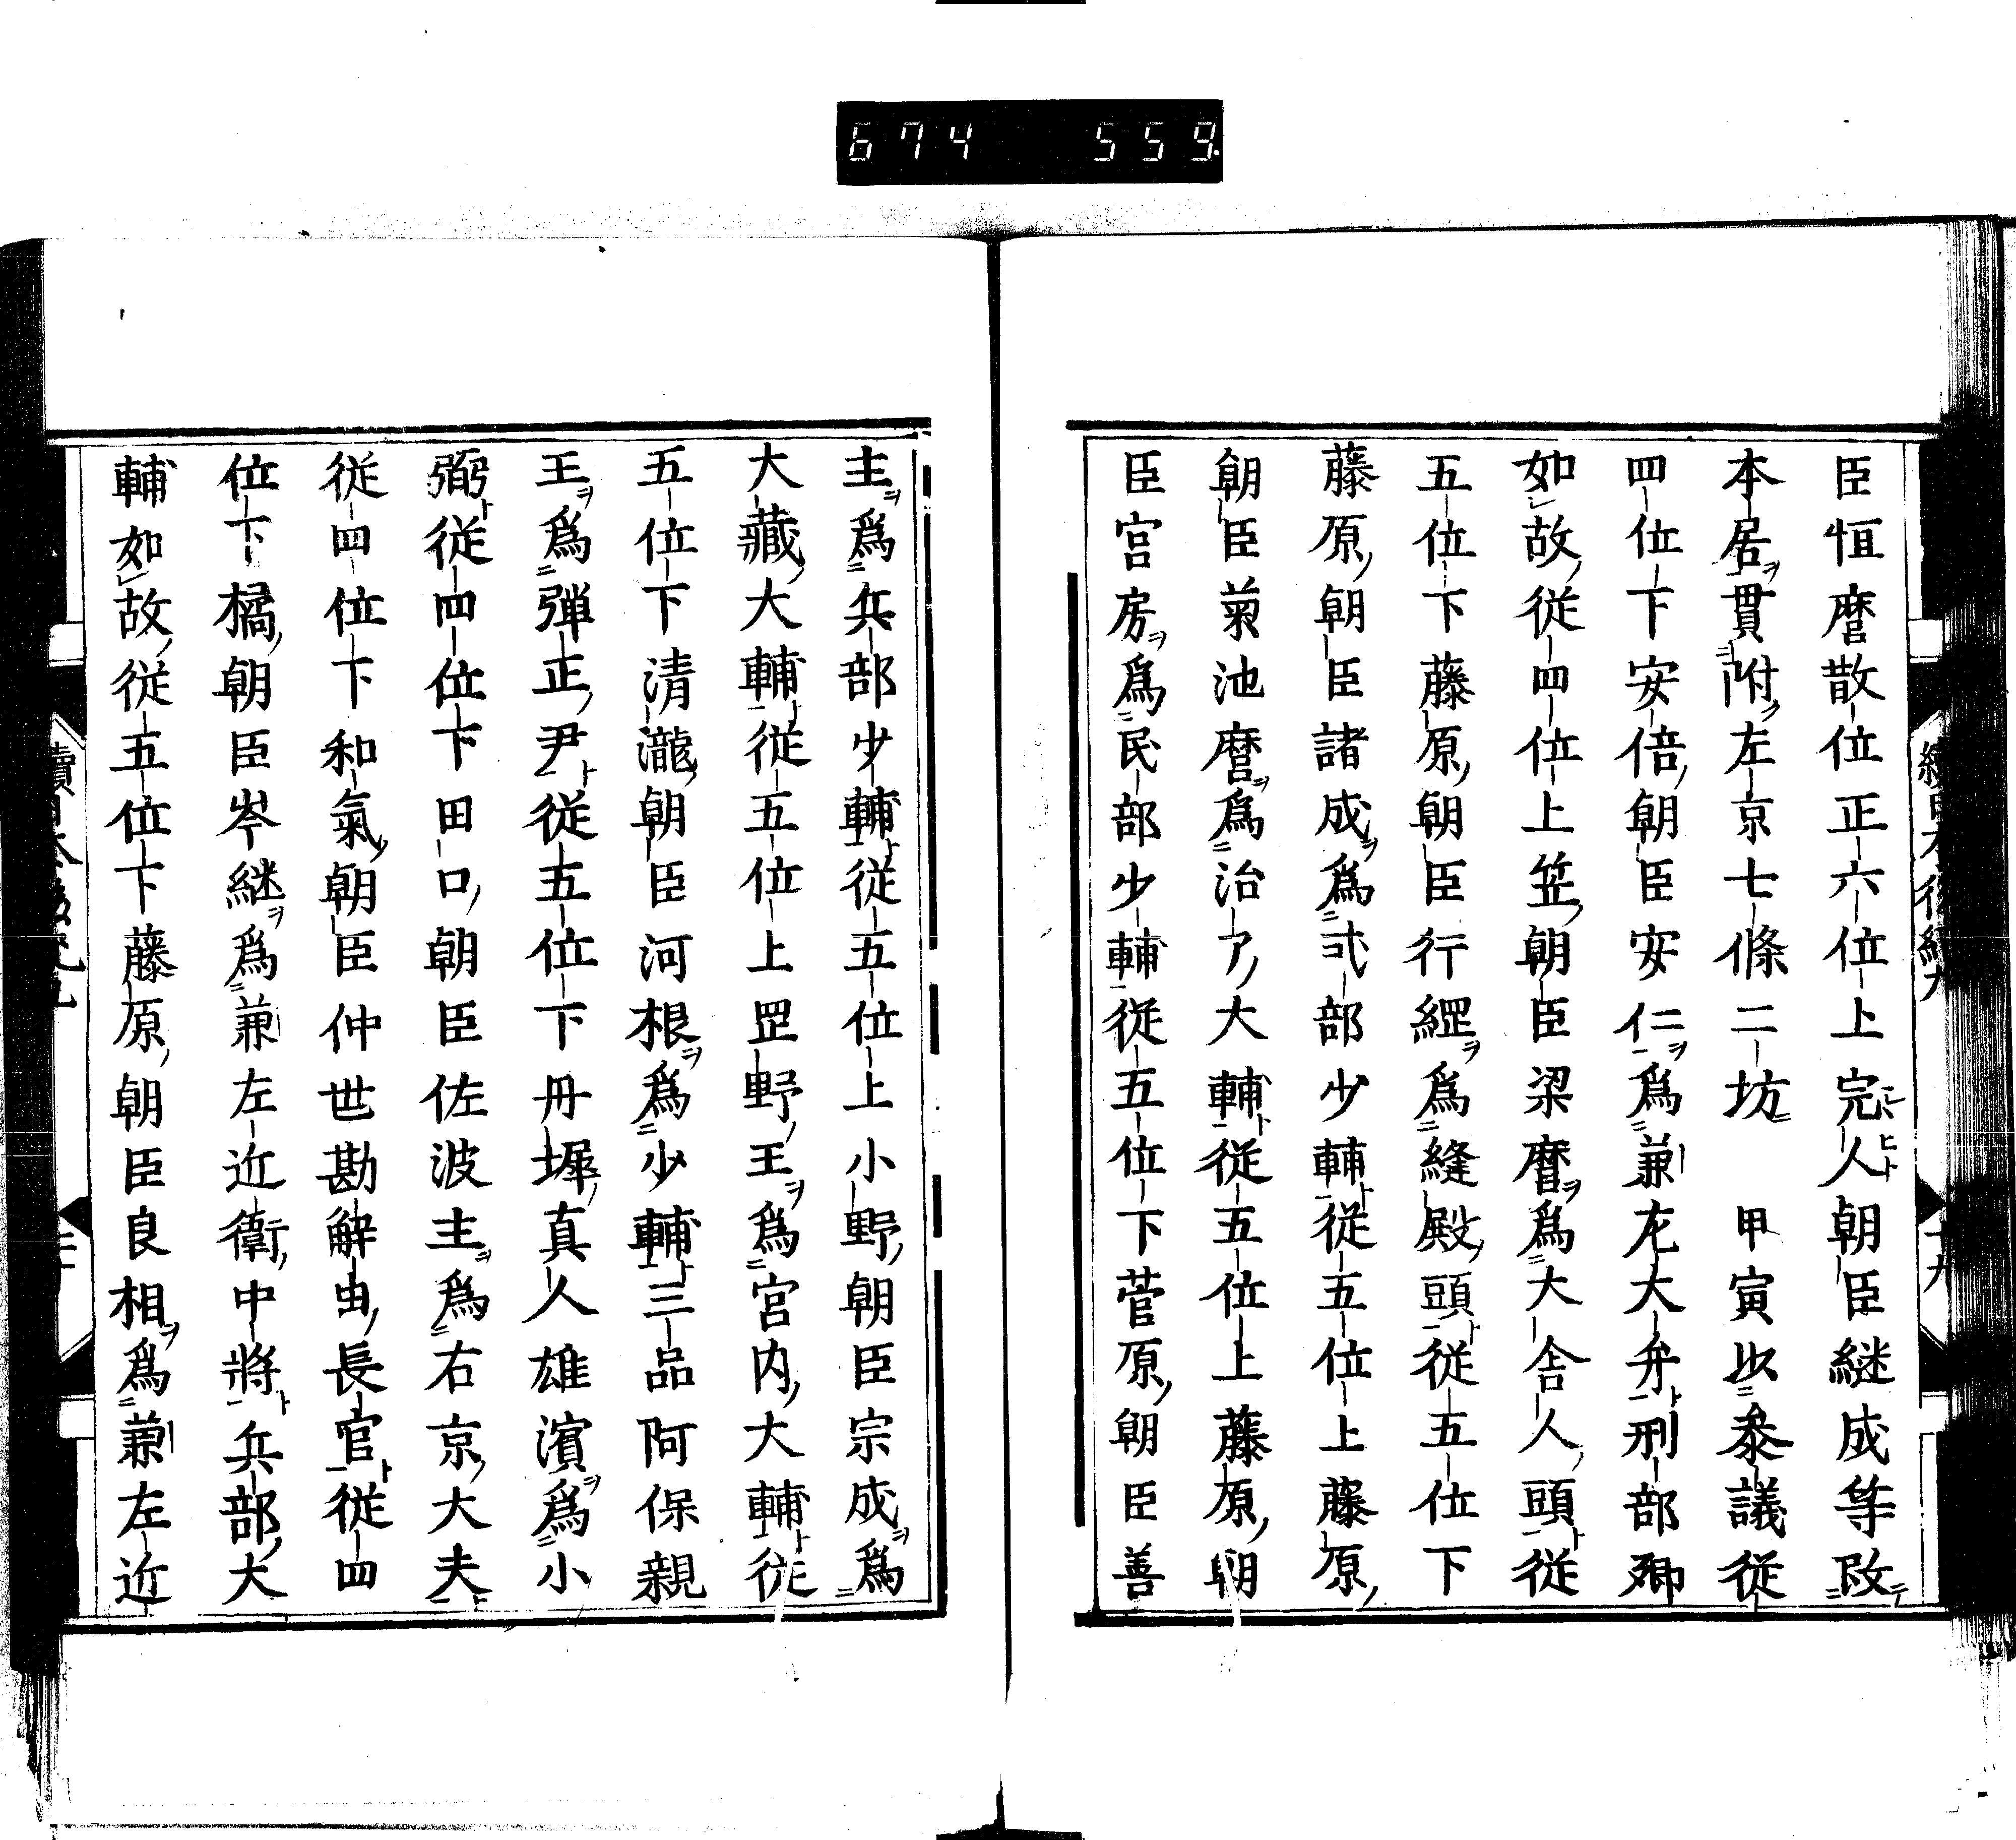 674 559
臣恒麿散位正六位上宍人朝臣継成等改
本居貫附左京七條二坊 甲寅以叅議従
四位下安倍朝臣安仁爲兼左大弁刑部卿
如故従四位上笠朝臣梁麿爲大舎人頭従
五位下藤原朝臣行縄爲縫殿頭従五位下
藤原朝臣諸成爲式部少輔従五位上藤原
朝臣菊池麿爲治部大輔従五位上藤原朝
臣宮房爲民部少輔従五位下菅原朝臣善
主爲兵部少輔従五位上小野朝臣宗成爲
大藏大輔従五位上岡野王爲宮内大輔従
五位下清瀧朝臣河根爲少輔三品阿保親
王爲弾正尹従五位下丹墀真人雄濱爲小
弼従四位下田口朝臣佐波主爲右京大夫
従四位下和氣朝臣仲世勘解由長官従四
位下橘朝臣岑継爲兼左近衛中將兵部大
輔如故従五位下藤原朝臣良相爲兼左近